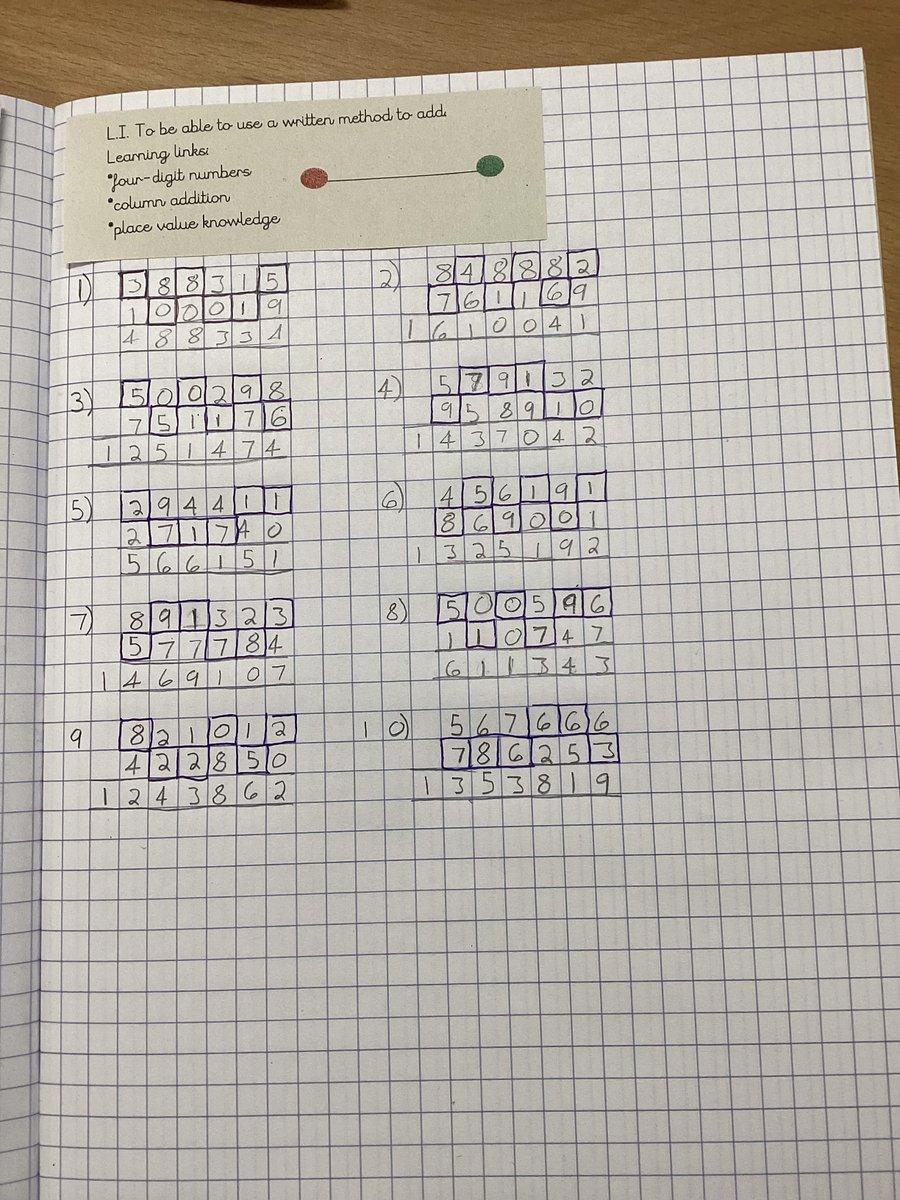 L.I. To be able to use a written method to add.
Learning links:
*four-digit numbers
*column addition
*place value knowledge
1) 388315
100019
488334
2) 848882
761169
1610041
3) 500298
751176
1251474
4) 579132
958910
1437042
5) 294411
271740
566151
6) 456191
869001
1325192
7) 891323
577784
1469107
8) 500596
110747
611343
9 821012
422850
1243862
10) 567666
786253
1353819